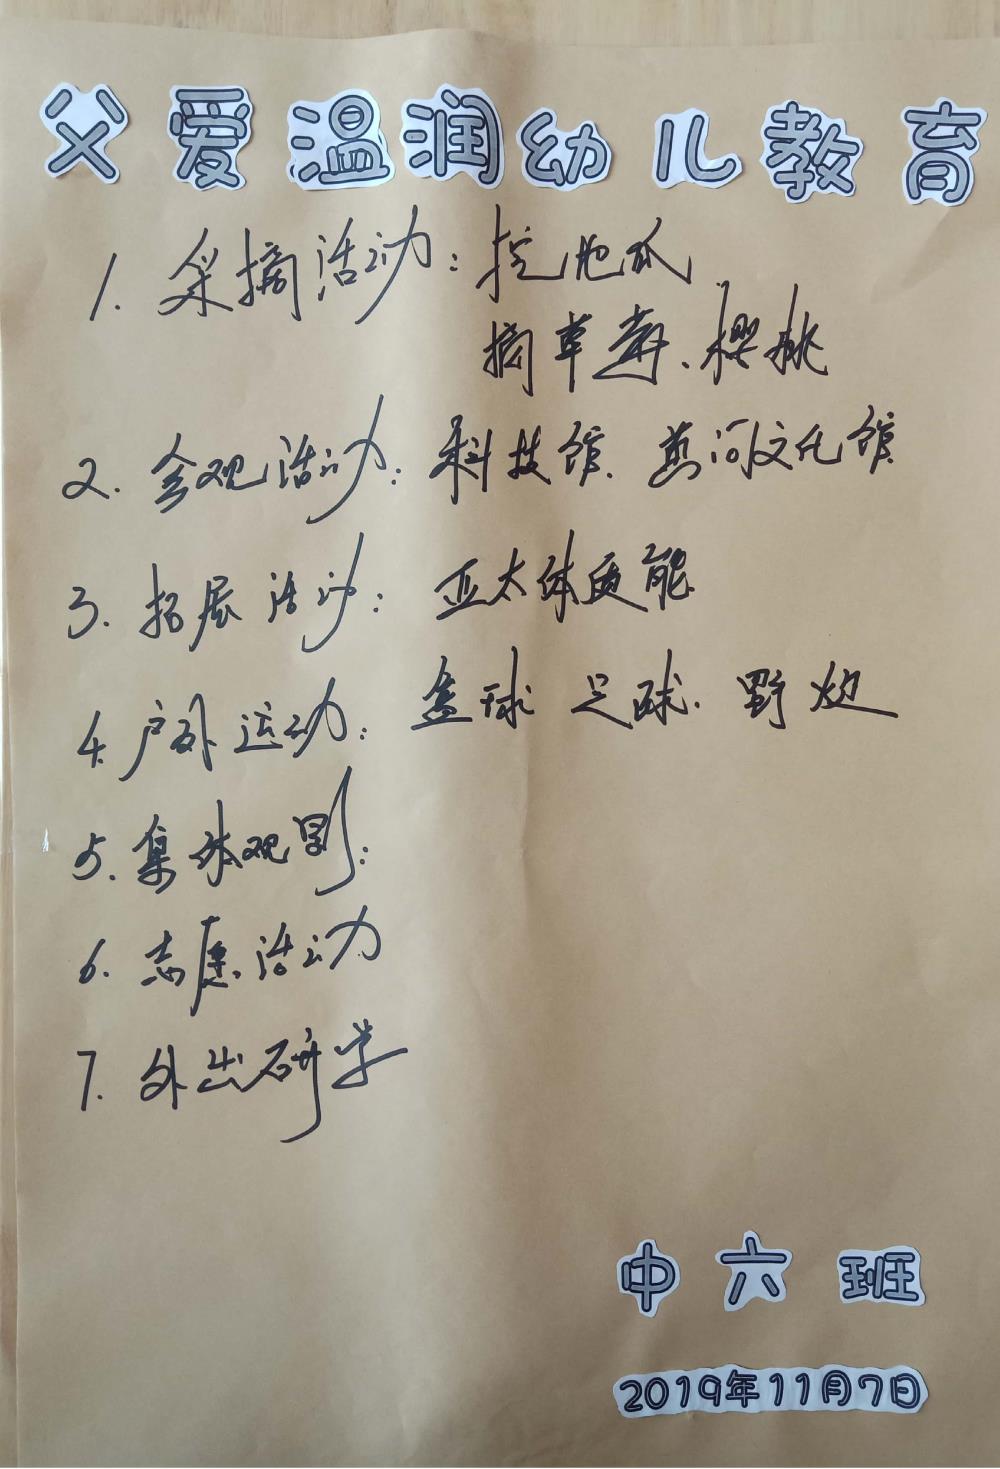 父爱温润幼儿教育
1. 采摘活动：挖地瓜
摘草莓、樱桃
2. 参观活动：科技馆、黄河文化馆
3. 拓展活动：亚太体质能
4. 户外运动：篮球 足球、野炊
5. 集体观影：
6. 志愿活动
7. 外出研学
中六班
2019年11月7日